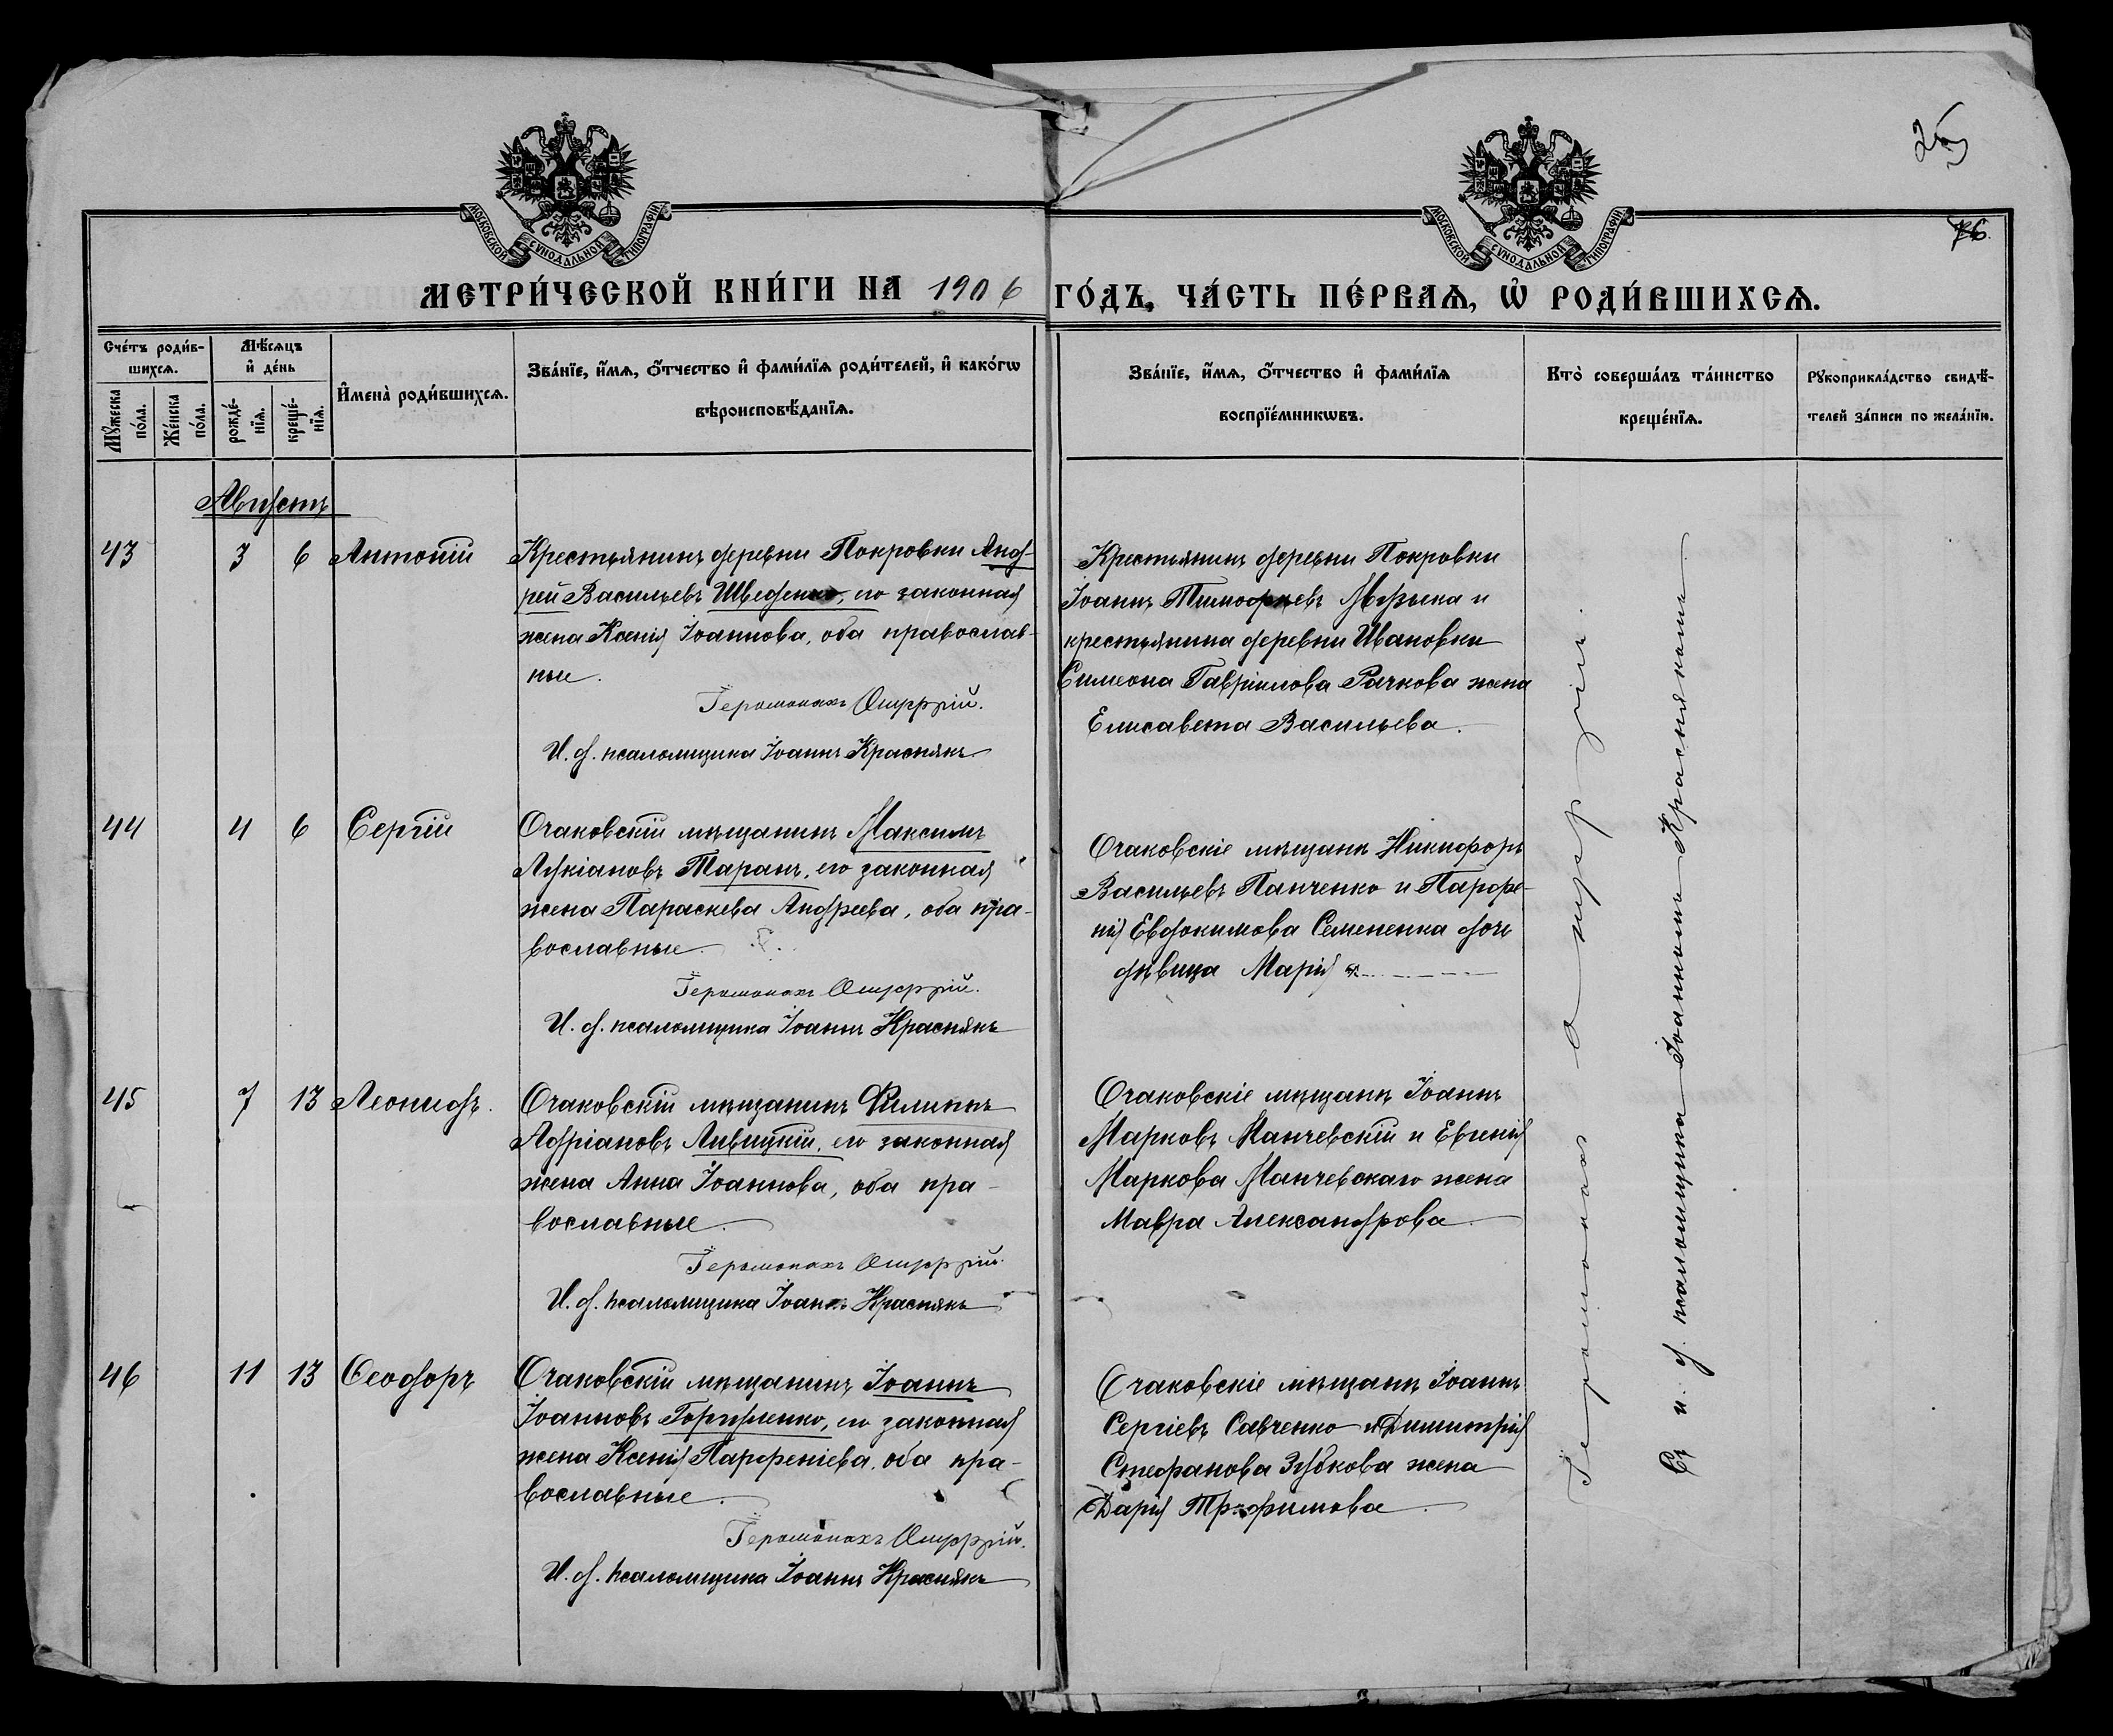 25
76.
МОСКОВСКОЙ СѴНОДАЛЬНОЙ ТИПОГРАФІИ
МОСКОВСКОЙ СѴНОДАЛЬНОЙ ТИПОГРАФІИ
МЕТРИ́ЧЕСКОЙ КНИ́ГИ НА 1906 ГО́ДЪ, ЧА́СТЬ ПЕ́РВАѦ, Ѡ҆ РОДИ́ВШИХСѦ.
Сче́тъ роди́вшихсѧ.
Мꙋ́жеска по́ла.
Же́нска по́ла.
Мѣ́сѧцъ и҆ де́нь
рожде́нїѧ.
креще́нїѧ.
И҆мена̀ роди́вшихсѧ.
Зва́нїе, и҆́мѧ, ѻ҆́тчество и҆ фами́лїѧ роди́телей, и҆ како́гѡ
вѣроисповѣ́данїѧ.
Зва́нїе, и҆́мѧ, ѻ҆́тчество и҆ фами́лїѧ
воспрїе́мникѡвъ.
Кто̀ соверша́лъ та́инство
креще́нїѧ.
Рꙋкоприкла́дство свидѣ́-
телей за́писи по жела́нїю.
Августъ
43 3 6 Антоній
Крестьянинъ деревни Покровки Анд-
рей Васильевъ Шведенко, его законная
жена Ксенія Іоаннова, оба православ-
ные.
Іеромонахъ
И. д. псаломщика Іоаннъ Краснякъ
Крестьянинъ деревни Покровки
Іоаннъ Тимофеевъ и
крестьянина деревни Ивановки
Симеона Гавріилова Рачкова жена
Елисавета Васильева.
44 4 6 Сергій
Очаковскій мѣщанинъ Максимъ
Лукіановъ Таранъ, его законная
жена Параскева Андреева, оба пра-
вославные.
Іеромонахъ
И. д. псаломщика Іоаннъ Краснякъ
Очаковскіе мѣщане Никифоръ
Васильевъ Панченко и Парфе-
нія Евдокимова Семененка дочь
дѣвица Марія
45 7 13 Леонидъ.
Очаковскій мѣщанинъ Филиппъ
Адріановъ Ливицкій, его законная
жена Анна Іоаннова, оба пра-
вославные.
Іеромонахъ
И. д. псаломщика Іоаннъ Краснякъ
Очаковскіе мѣщане Іоаннъ
Марковъ Манчевскій и Евгенія
Маркова Манчевскаго жена
Мавра Александрова.
46 11 13 Ѳеодоръ
Очаковскій мѣщанинъ Іоаннъ
Іоанновъ его законная
жена Ксенія Парфеніева, оба пра-
вославные.
Іеромонахъ
И. д. псаломщика Іоаннъ Краснякъ
Очаковскіе мѣщане Іоаннъ
Сергіевъ Савченко и Димитрія
Стефанова Зубкова жена
Дарія Трофимова.
Іеромонахъ
Съ и. д. псаломщика Іоанномъ Краснякомъ